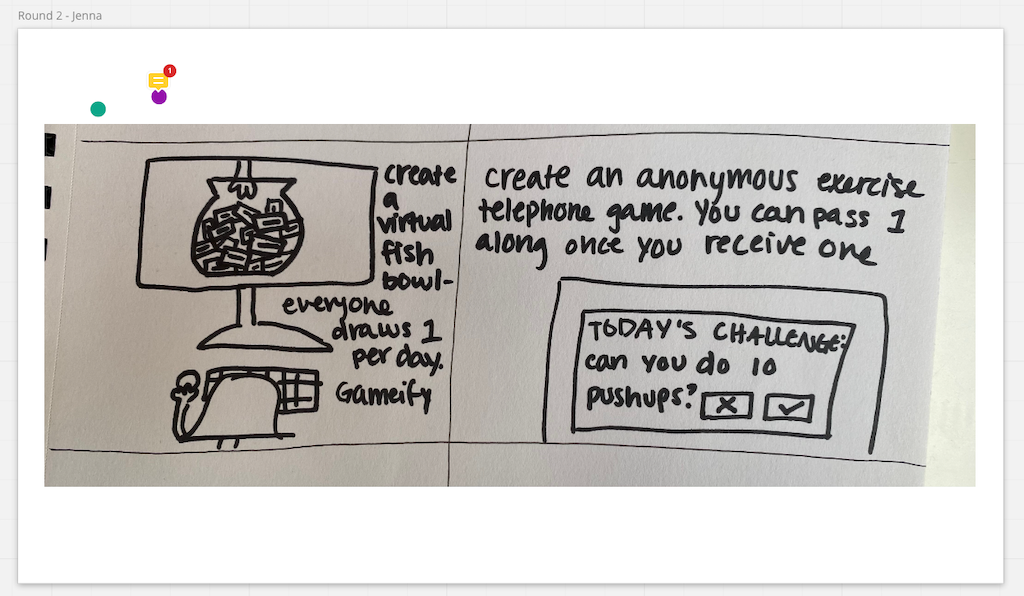 Round 2 - Jenna
1
create
a
virtual
fish
bowl-
everyone
draws 1
per day.
Gameify
create an anonymous exercise
telephone game. You can pass 1
along once you receive one
TODAY'S CHALLENGE:
can you do 10
pushups?